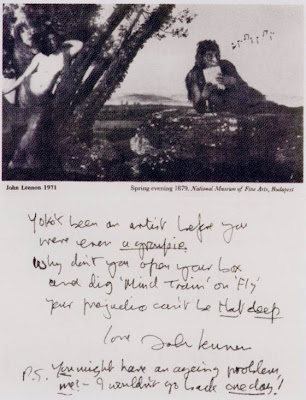 John Lennon 1971
Spring evening 1879. National Museum of Fine Arts, Budapest
Yoko's been an artist before you
were even a groupie.
why don't you open your box
and dig 'Mind Train' on 'Fly'
your prejudice can't be that deep
love John Lennon
P.S. You might have an ageing problem,
me! - I wouldn't go back one day!